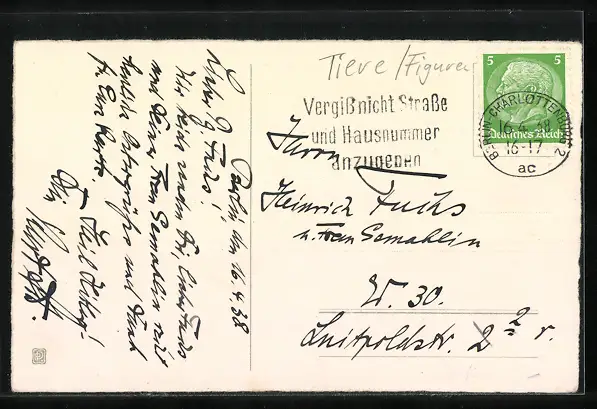 Tiere/Figuren
5 5
Deutsches Reich
BERLIN-CHARLOTTENBURG 2
16.4.38
16-17
ac
Vergiß nicht Straße
und Hausnummer
anzugeben
Herrn
Heinrich Fuchs
u. Frau Gemahlin
W. 30.
Luitpoldstr. 22 r.
Berlin, den 16.4.38
Lieber G. Fuchs!
Wir senden Dir, lieber Fuchs
und Deiner Frau Gemahlin recht
herzliche Ostergrüße und Dank
für Eure Karte.
Heil Hitler!
Dein